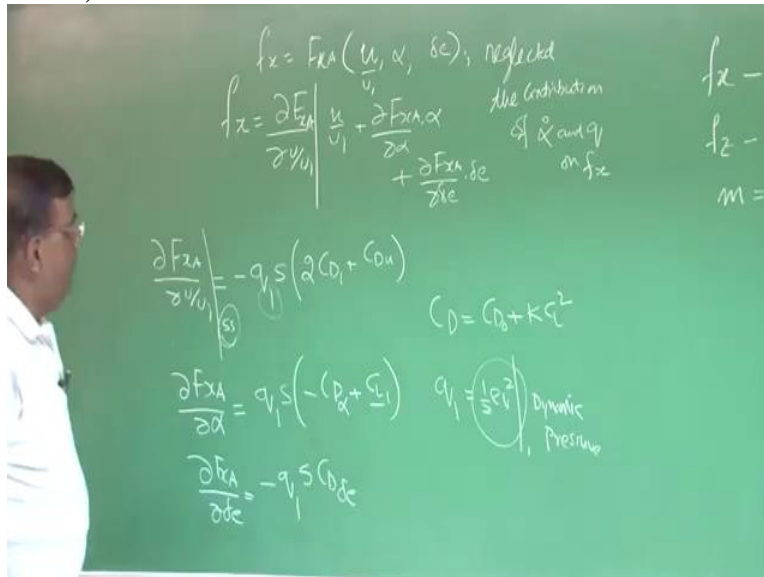 fx = FxA (u/u₁, α, δe); neglected
the contribution
of α̇ and q
on fx
fx = ∂FxA/∂u/u₁ | u/u₁ + ∂FxA/∂α . α
+ ∂FxA/∂δe . δe
fx -
fz -
m =
∂FxA/∂u/u₁ |ss = -q₁S(2CD₁ + CDu)
CD = CD₀ + KCL²
∂FxA/∂α = q₁S(-CDα + CL₁)
q₁ = 1/2 ρv² |₁ Dynamic
Pressure
∂FxA/∂δe = -q₁S CDδe